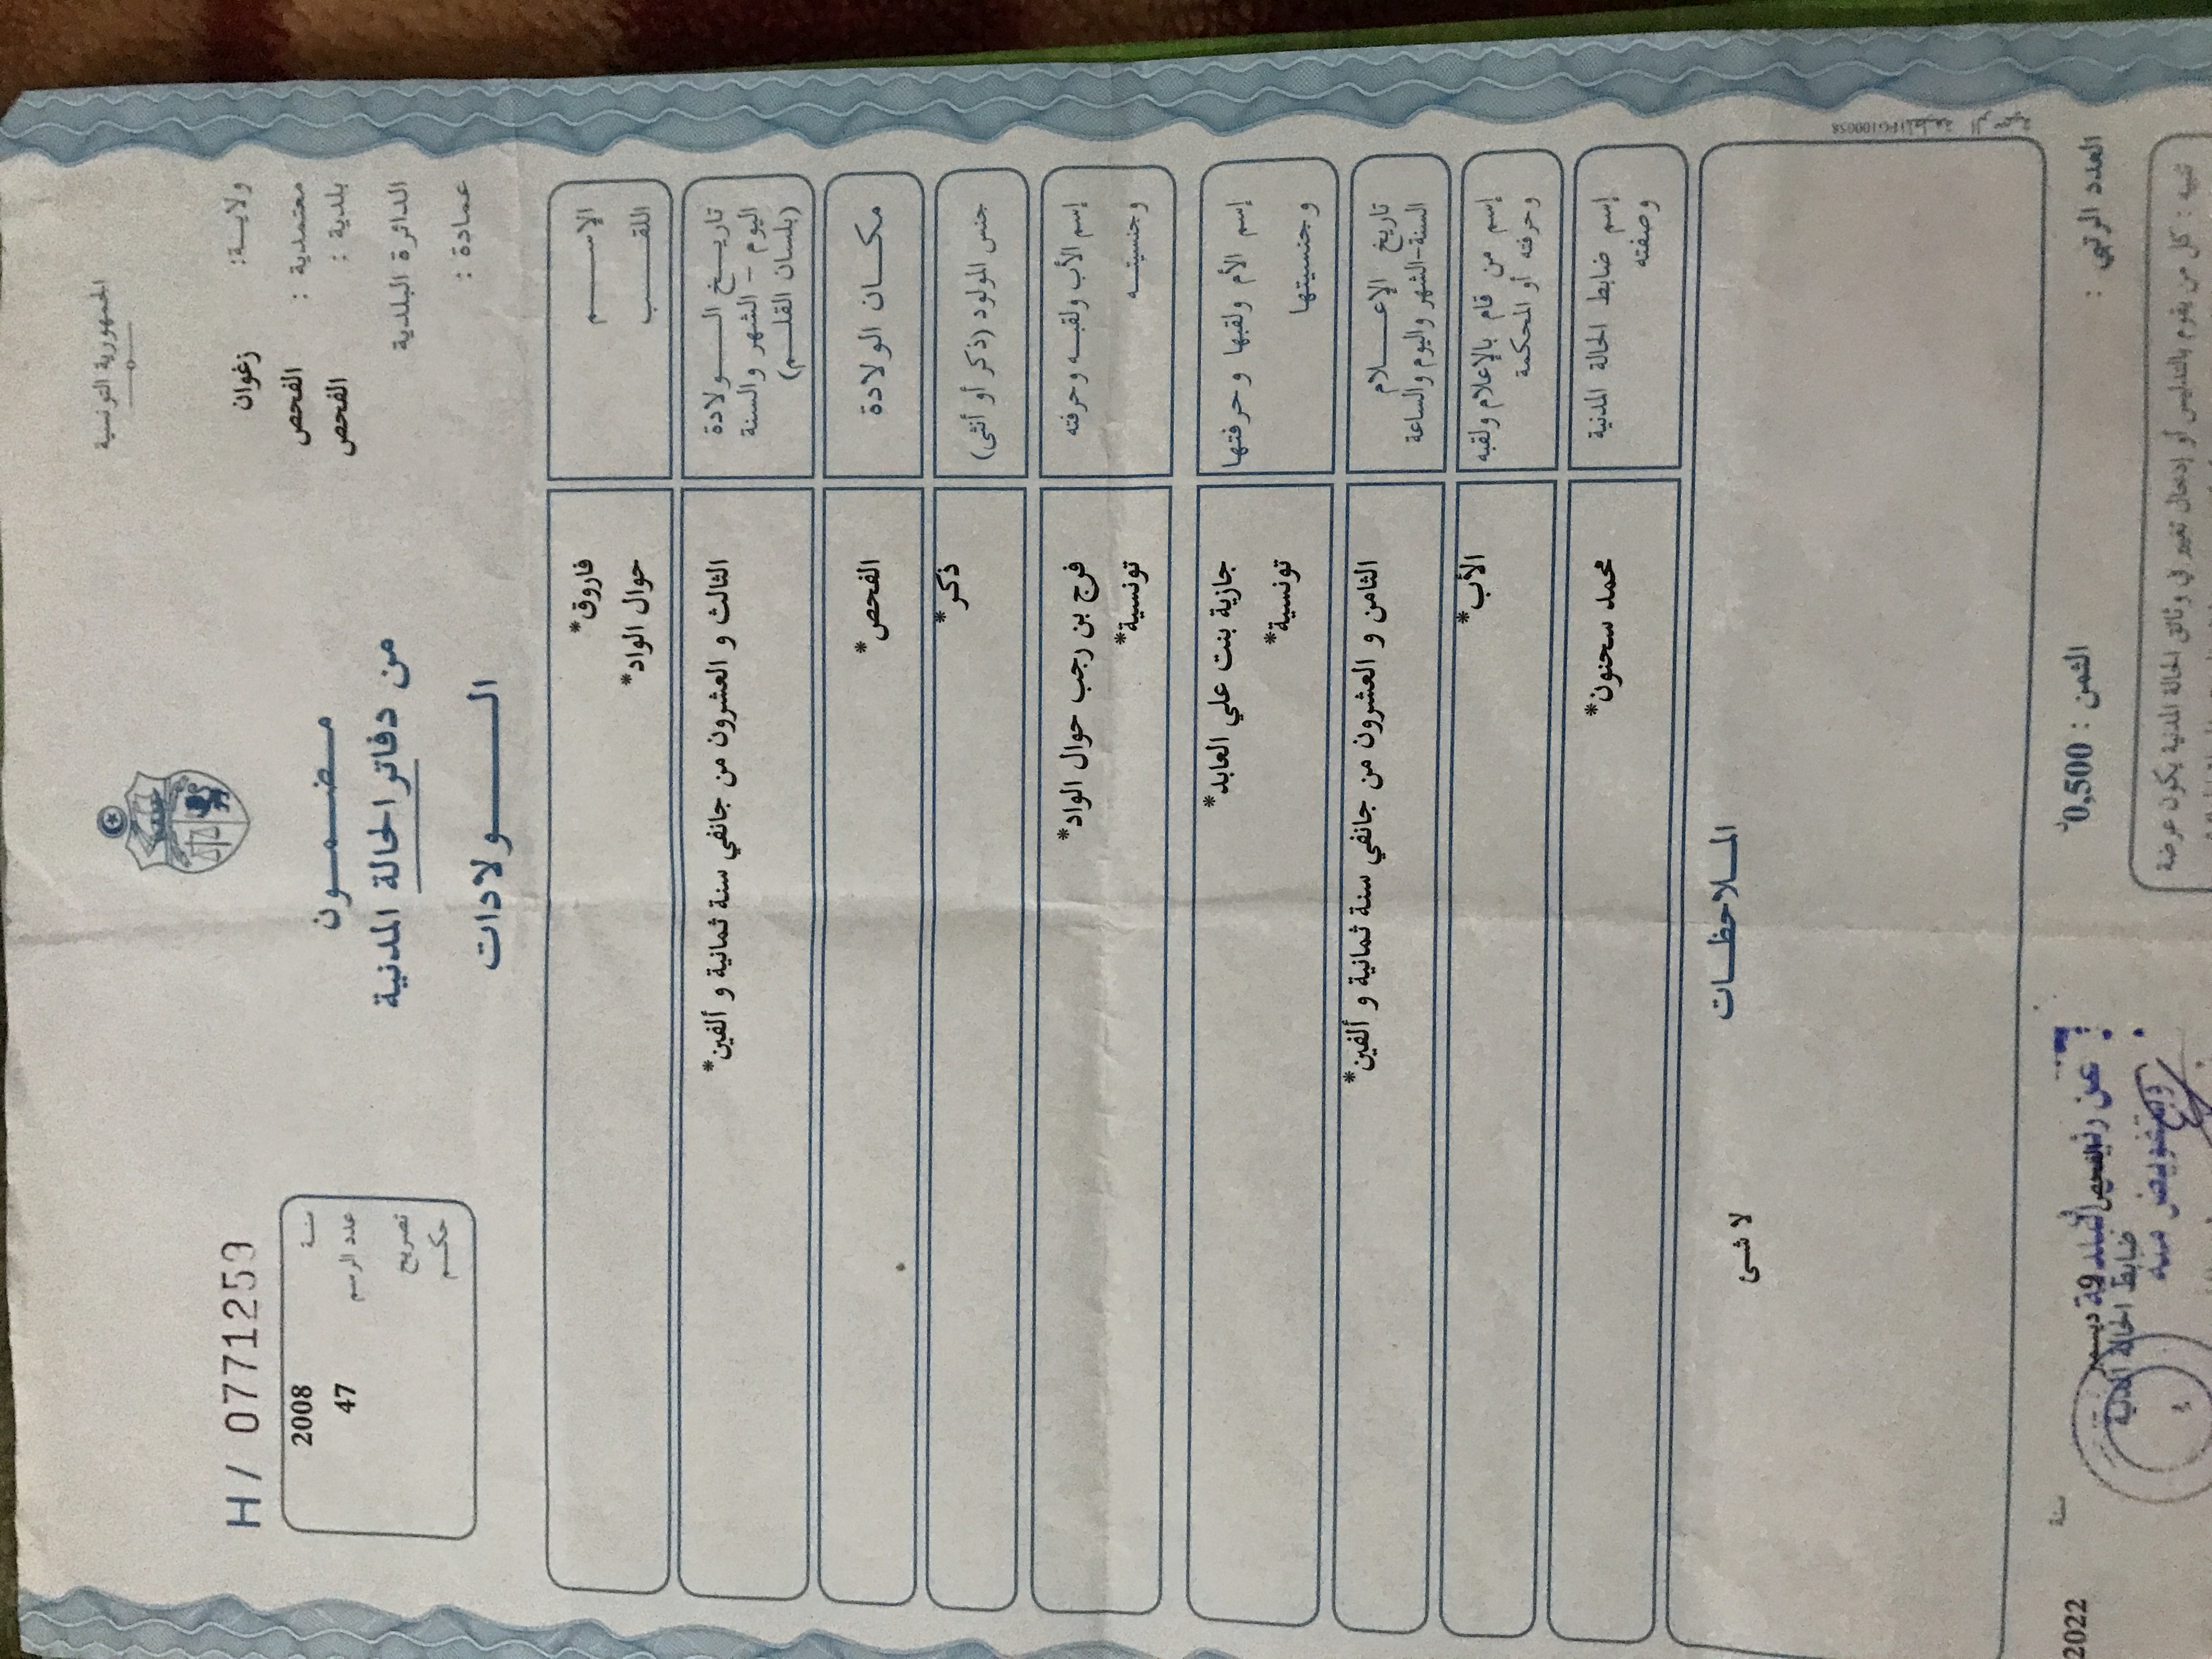 الجمهورية التونسية
ولاية: زغوان
معتمدية : الفحص
بلدية : الفحص
الدائرة البلدية
عمادة :
مضمون
من دفاتر الحالة المدنية
الولادات
H / 0771259
سنة 2008
عدد الرسم 47
تصريح
حكم
الإسم فاروق*
اللقب حوال الواد*
تاريخ الولادة
اليوم - الشهر والسنة
(بلسان القلم)
الثالث و العشرون من جانفي سنة ثمانية و ألفين*
مكان الولادة الفحص*
جنس المولود (ذكر أو أنثى) ذكر*
إسم الأب ولقبه وحرفته فرج بن رجب حوال الواد*
وجنسيته تونسية*
إسم الأم ولقبها وحرفتها جازية بنت علي العابد*
وجنسيتها تونسية*
تاريخ الإعلام
السنة-الشهر واليوم والساعة
الثامن و العشرون من جانفي سنة ثمانية و ألفين*
إسم من قام بالإعلام ولقبه
وحرفته أو المحكمة
الأب*
إسم ضابط الحالة المدنية
وصفته
محمد سحنون*
الملاحظات
لا شئ
العدد الرتبي :
الثمن : 0,500
سنة 2022
ضابط الحالة المدنية
تنبيه : كل من يقوم بالتدليس أو إدخال تغيير في وثائق الحالة المدنية يكون عرضة